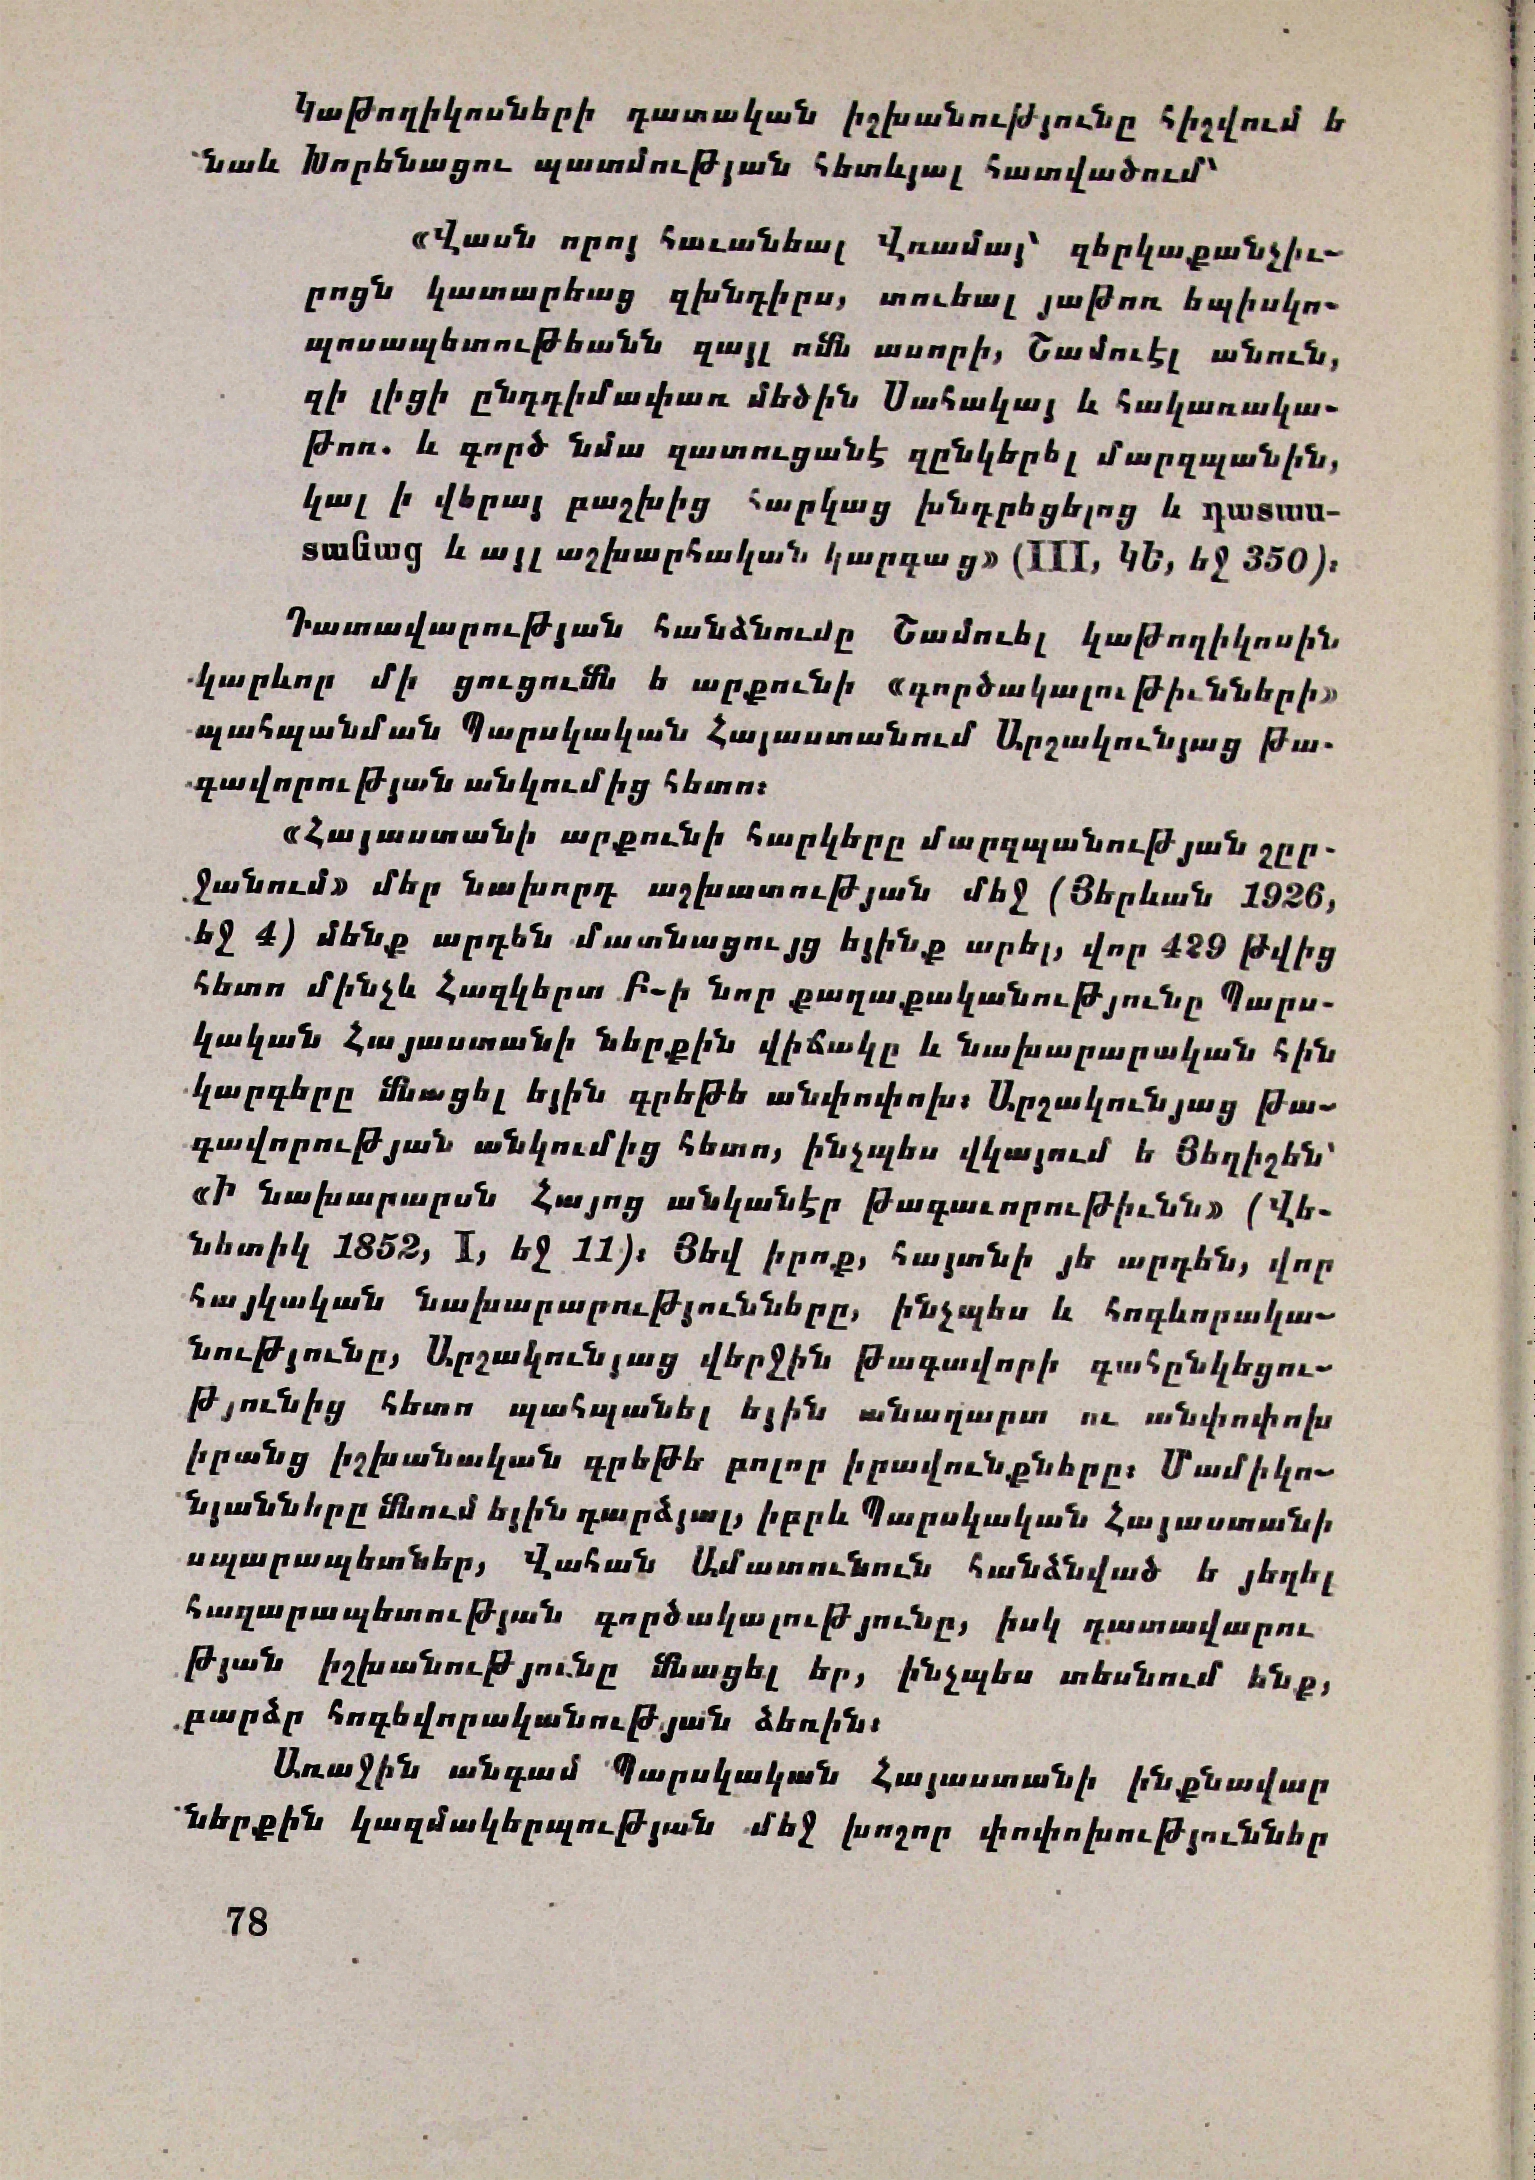 Կաթողիկոսների դատական իշխանությունը հիշվում ե
նաև Խորենացու պատմության հետևյալ հատվածում՝
«Վասն որոյ հաւանեալ Վռամայ՝ զերկաքանչիւ-
րոցն կատարեաց զխնդիրս, տուեալ յաթոռ եպիսկո-
պոսապետութեանն զայլ ոմն ասորի, Շամուէլ անուն,
զի լիցի ընդդիմափառ մեծին Սահակայ և հակառակա-
թոռ. և գործ նմա զատուցանէ զընկերել մարզպանին,
կալ ի վերայ բաշխից հարկաց խնդրեցելոց և դատաս-
տանաց և այլ աշխարհական կարգաց» (III, ԿԵ, եջ 350)։
Դատավարության հանձնումը Շամուել կաթողիկոսին
կարևոր մի ցուցումն ե արքունի «գործակալութիւնների»
պահպանման Պարսկական Հայաստանում Արշակունյաց թա-
գավորության անկումից հետո։
«Հայաստանի արքունի հարկերը մարզպանության շըր-
ջանում» մեր նախորդ աշխատության մեջ (Յերևան 1926,
եջ 4) մենք արդեն մատնացույց եյինք արել, վոր 429 թվից
հետո մինչև Հազկերտ Բ-ի նոր քաղաքականությունը Պարս-
կական Հայաստանի ներքին վիճակը և նախարարական հին
կարգերը մնացել եյին գրեթե անփոփոխ։ Արշակունյաց թա-
գավորության անկումից հետո, ինչպես վկայում ե Յեղիշեն՝
«Ի նախարարսն Հայոց անկանէր թագաւորութիւնն» (Վե-
նետիկ 1852, I, եջ 11)։ Յեվ իրոք, հայտնի յե արդեն, վոր
հայկական նախարարությունները, ինչպես և հոգևորակա-
նությունը, Արշակունյաց վերջին թագավորի գահընկեցու-
թյունից հետո պահպանել եյին անաղարտ ու անփոփոխ
իրանց իշխանական գրեթե բոլոր իրավունքները։ Մամիկո-
նյանները մնում եյին դարձյալ, իբրև Պարսկական Հայաստանի
սպարապետներ, Վահան Ամատունուն հանձնված ե յեղել
հազարապետության գործակալությունը, իսկ դատավարու
թյան իշխանությունը մնացել եր, ինչպես տեսնում ենք,
բարձր հոգեվորականության ձեռին։
Առաջին անգամ Պարսկական Հայաստանի ինքնավար
ներքին կազմակերպության մեջ խոշոր փոփոխությունններ
78